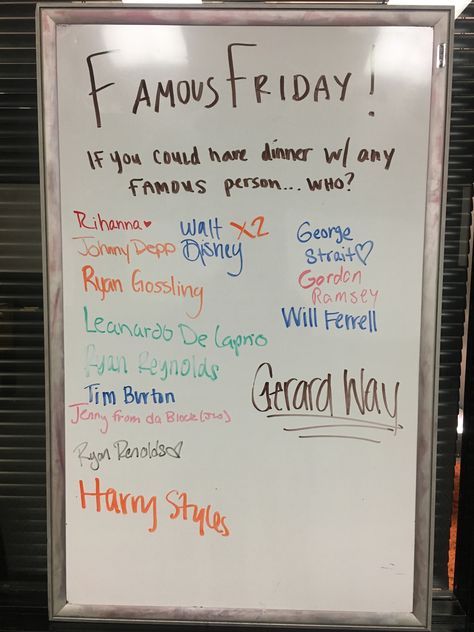 FAMOUS FRIDAY!
IF you could have dinner w/ any
FAMOUS person... WHO?
Rihanna♥
Johnny Depp
Ryan Gossling
Leanardo De Caprio
Ryan Reynolds
Tim Burton
Jenny from da Block (JLO)
Ryan Renolds♡
Harry Styles
Walt X2
Disney
George
Strait♡
Gordon
Ramsey
Will Ferrell
Gerard Way